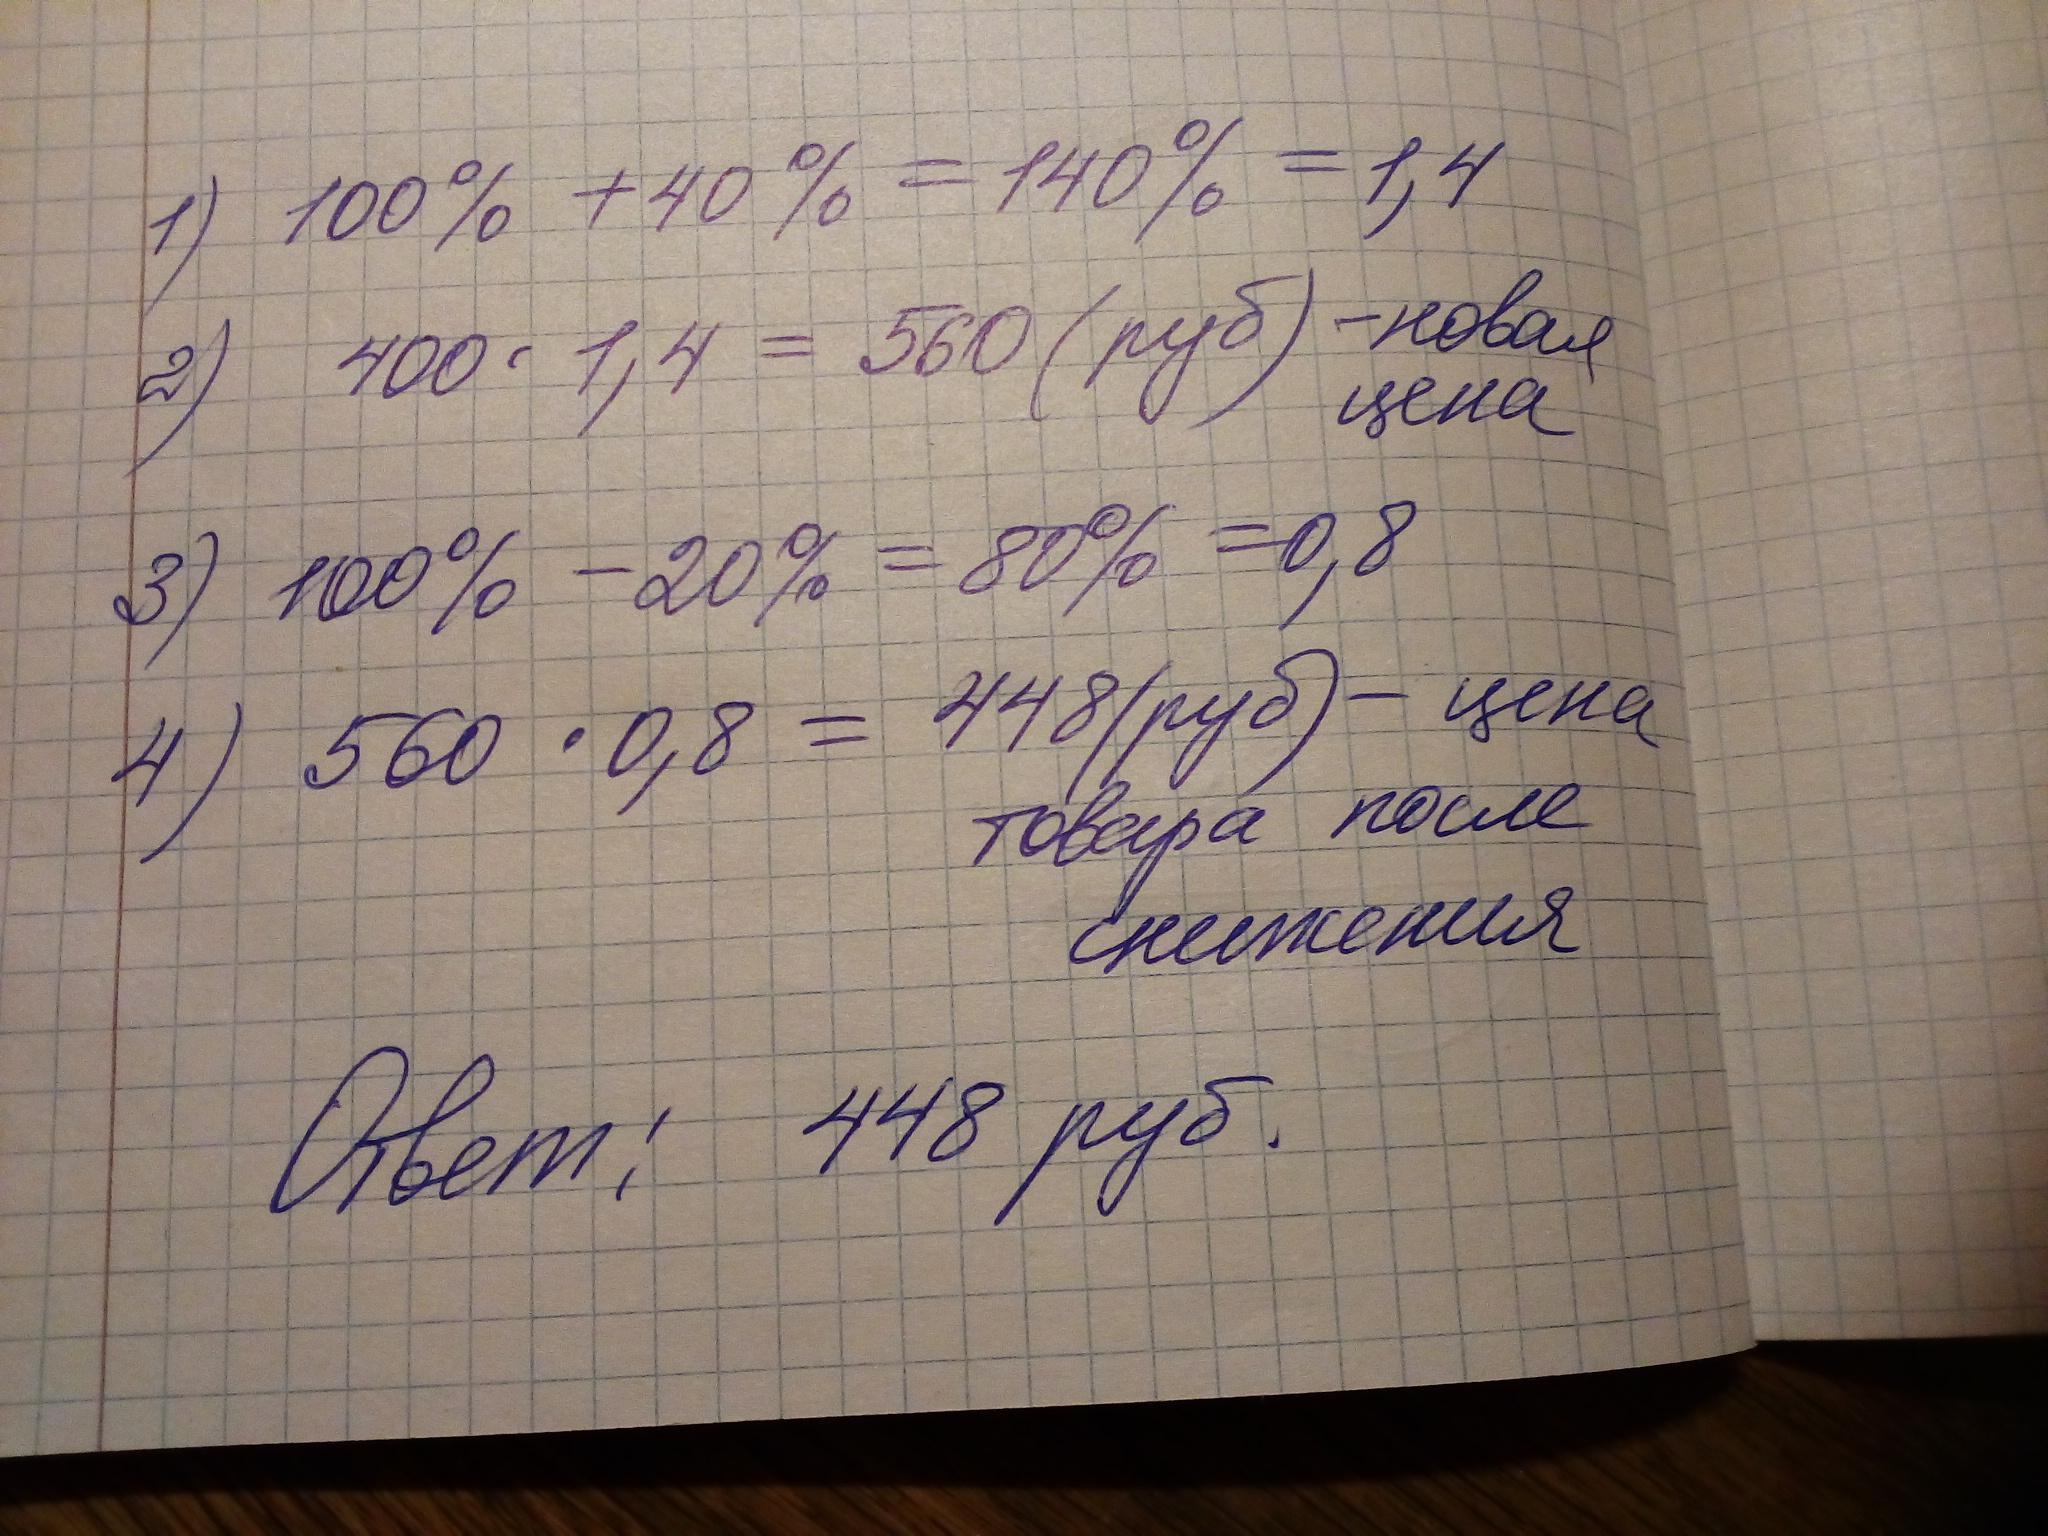 1) 100% + 40% = 140% = 1,4
2) 400 · 1,4 = 560 (руб) - новая
цена
3) 100% - 20% = 80% = 0,8
4) 560 · 0,8 = 448 (руб) - цена
товара после
снижения
Ответ: 448 руб.